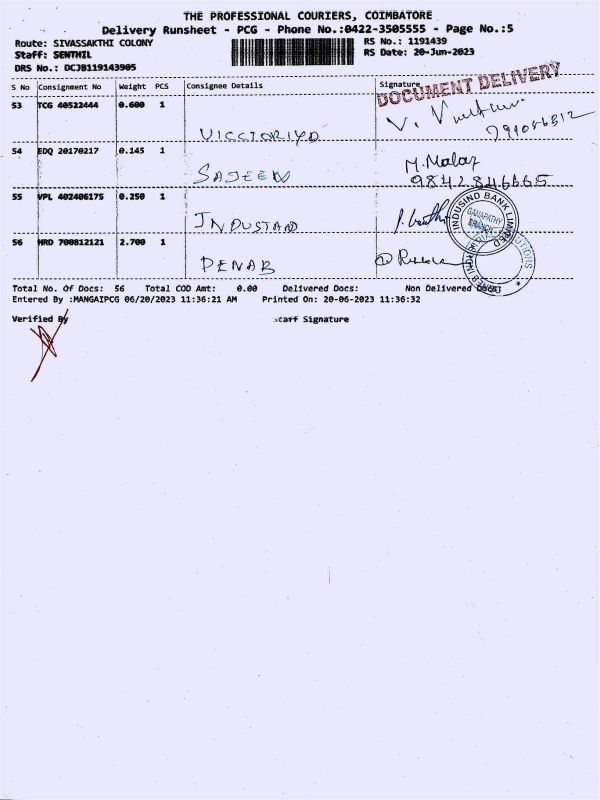 THE PROFESSIONAL COURIERS, COIMBATORE
Delivery Runsheet - PCG - Phone No.:0422-3505555 - Page No.:5
Route: SIVASSAKTHI COLONY
Staff: SENTHIL
DRS No.: DCJB119143905
RS No.: 1191439
RS Date: 20-Jun-2023
S No Consignment No Weight PCS Consignee Details Signature
DOCUMENT DELIVERY
53 TCG 40522444 0.600 1
VICCTORIYA
V.
54 EDQ 20170217 0.145 1
SAJEEN
M. Malar
9842846665
55 VPL 402406175 0.250 1
INDUSTAND
INDUSIND BANK LIMITED
GANAPATHY
BRANCH
56 HRD 700812121 2.700 1
DENAB
Total No. Of Docs: 56 Total COD Amt: 0.00 Delivered Docs: Non Delivered Docs:
Entered By :MANGAIPCG 06/20/2023 11:36:21 AM Printed On: 20-06-2023 11:36:32
Verified By Staff Signature